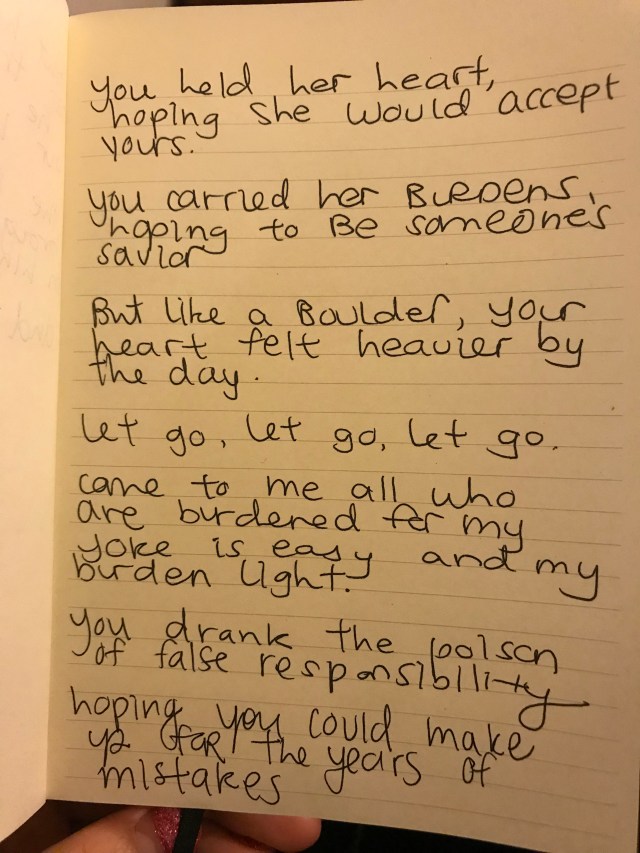 you held her heart,
hoping she would accept
yours.
you carried her BURDENS,
hoping to Be someone's
savior
But like a Boulder, your
heart felt heavier by
the day.
let go, let go, let go.
come to me all who
are burdened for my
yoke is easy and my
burden light.
you drank the poison
of false responsibility
hoping you could make
up for the years of
mistakes